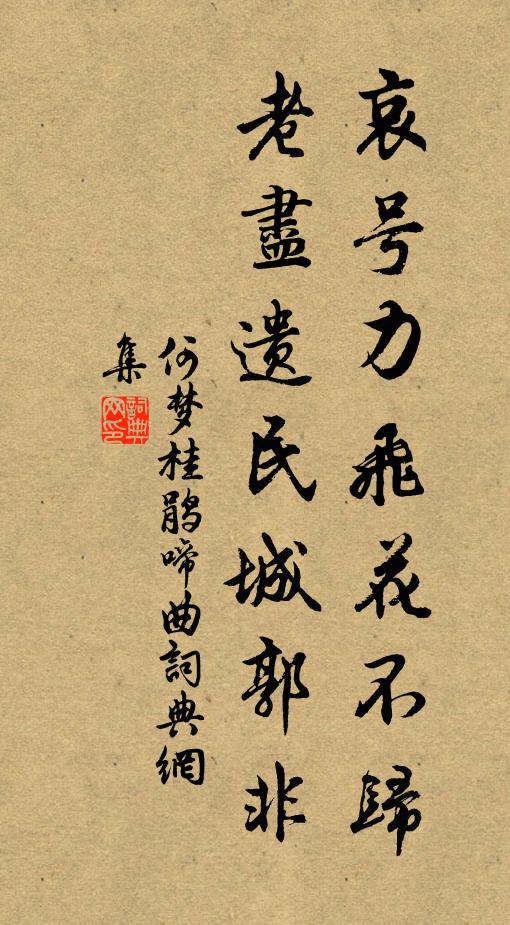 哀号力飛花不歸
老盡遺民城郭非
何梦桂鹃啼曲詞典網
集
詞典网印